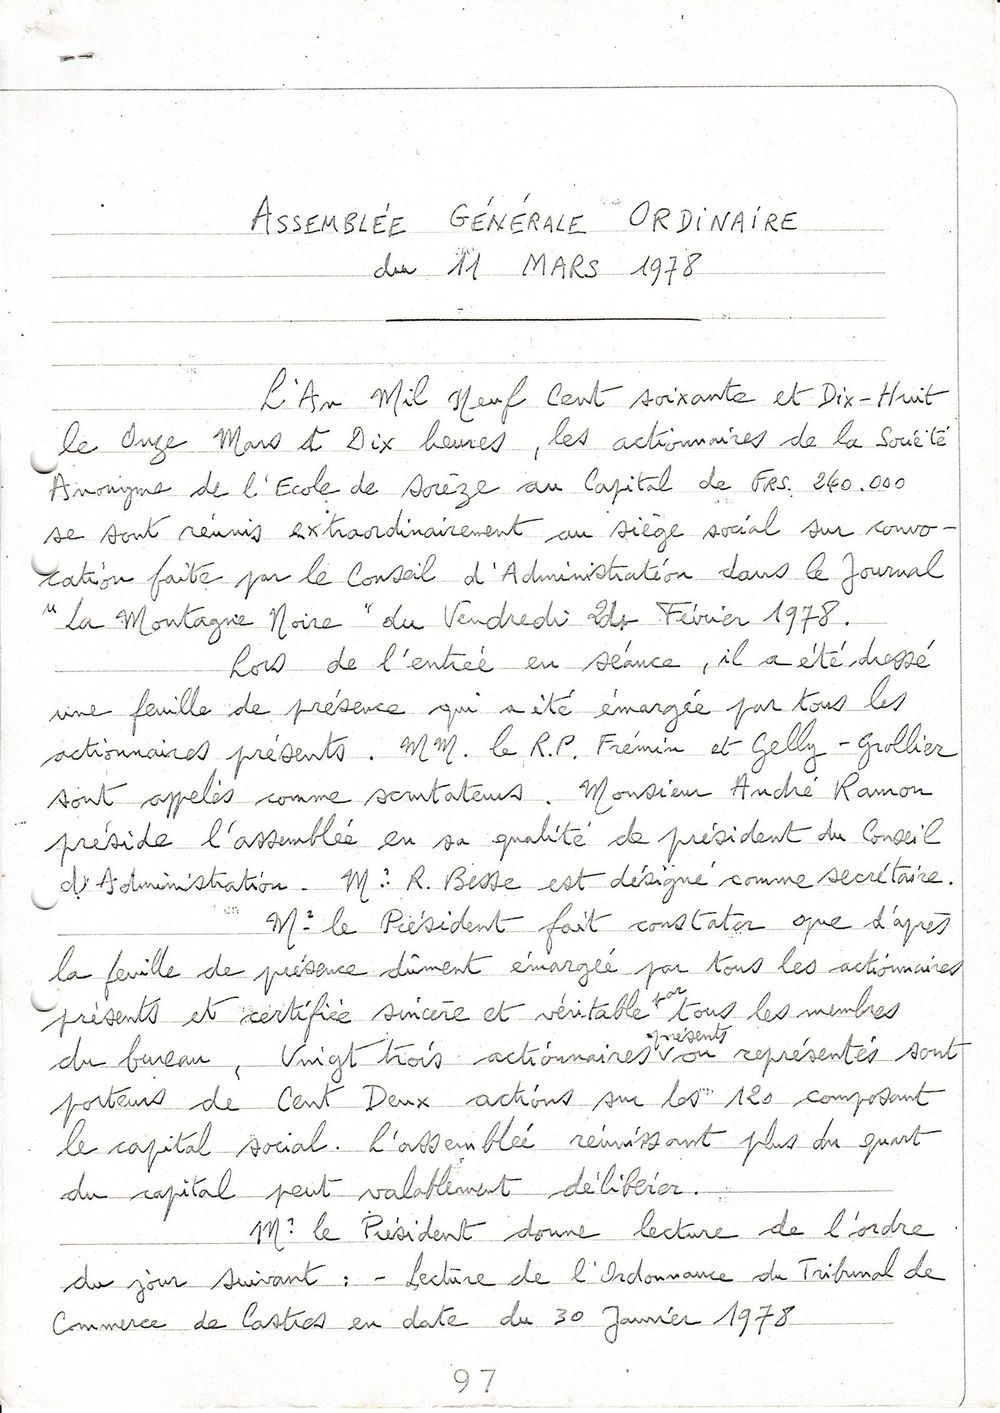 ASSEMBLÉE GÉNÉRALE ORDINAIRE
du 11 MARS 1978
L'An Mil Neuf Cent soixante et Dix-Huit
le Onze Mars à Dix heures, les actionnaires de la Société
Anonyme de l'Ecole de Sorèze au Capital de FRS. 240.000
se sont réunis extraordinairement au siège social sur convo-
cation faite par le Conseil d'Administration dans le Journal
"La Montagne Noire" du Vendredi 24 Février 1978.
Lors de l'entrée en séance, il a été dressé
une feuille de présence qui a été émargée par tous les
actionnaires présents. MM. le R.P. Frémin et Gelly-Grollier
sont appelés comme scrutateurs. Monsieur André Ramon
préside l'assemblée en sa qualité de président du Conseil
d'Administration. Mr R. Besse est désigné comme secrétaire.
Mr le Président fait constater que d'après
la feuille de présence dûment émargée par tous les actionnaires
présents et certifiée sincère et véritable par tous les membres
du bureau, Vingt trois actionnaires présents ou représentés sont
porteurs de Cent Deux actions sur les 120 composant
le capital social. L'assemblée réunissant plus du quart
du capital peut valablement délibérer.
Mr le Président donne lecture de l'ordre
du jour suivant : - Lecture de l'Ordonnance du Tribunal de
Commerce de Castres en date du 30 Janvier 1978
97